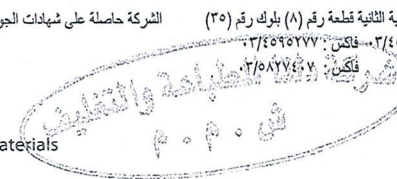 ية الثانية قطعة رقم (٨) بلوك رقم (٣٥) الشركة حاصلة على شهادات الجو
٠٣/٤ فاكس : ٠٣/٤٥٩٥٢٧٧
فاكس : ٠٣/٥٨٢٧٤٠٧
للطباعة والتغليف
ش . م . م
aterials